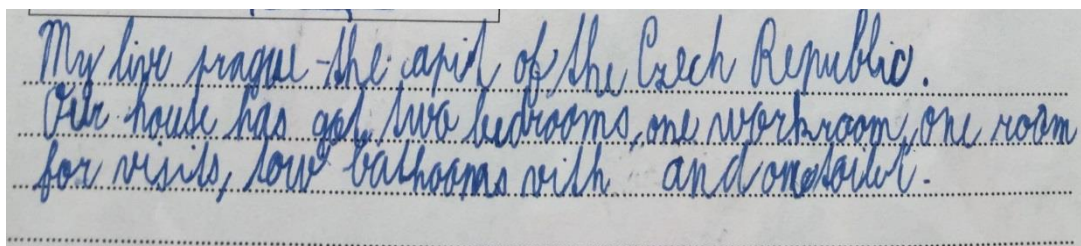 My live prague - the capit of the Czech Republic.
Our house has got two bedrooms, one workroom, one room
for visits, tow bathooms with and one toilet.